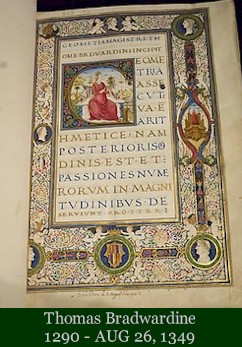 GEOMETIA MAGISTRI TH
OME BRDVARDINI INCIPIT
GEOME
TRA
ASSE
CVTI
VA E
ARIT
HMETICE: NAM
POSTERIORISO
DINIS EST: ET:
PASSIONES NVME
RORVM IN MAGNI
TVDINIBVS DE
SERVIVNT
Thomas Bradwardine
1290 - AUG 26, 1349